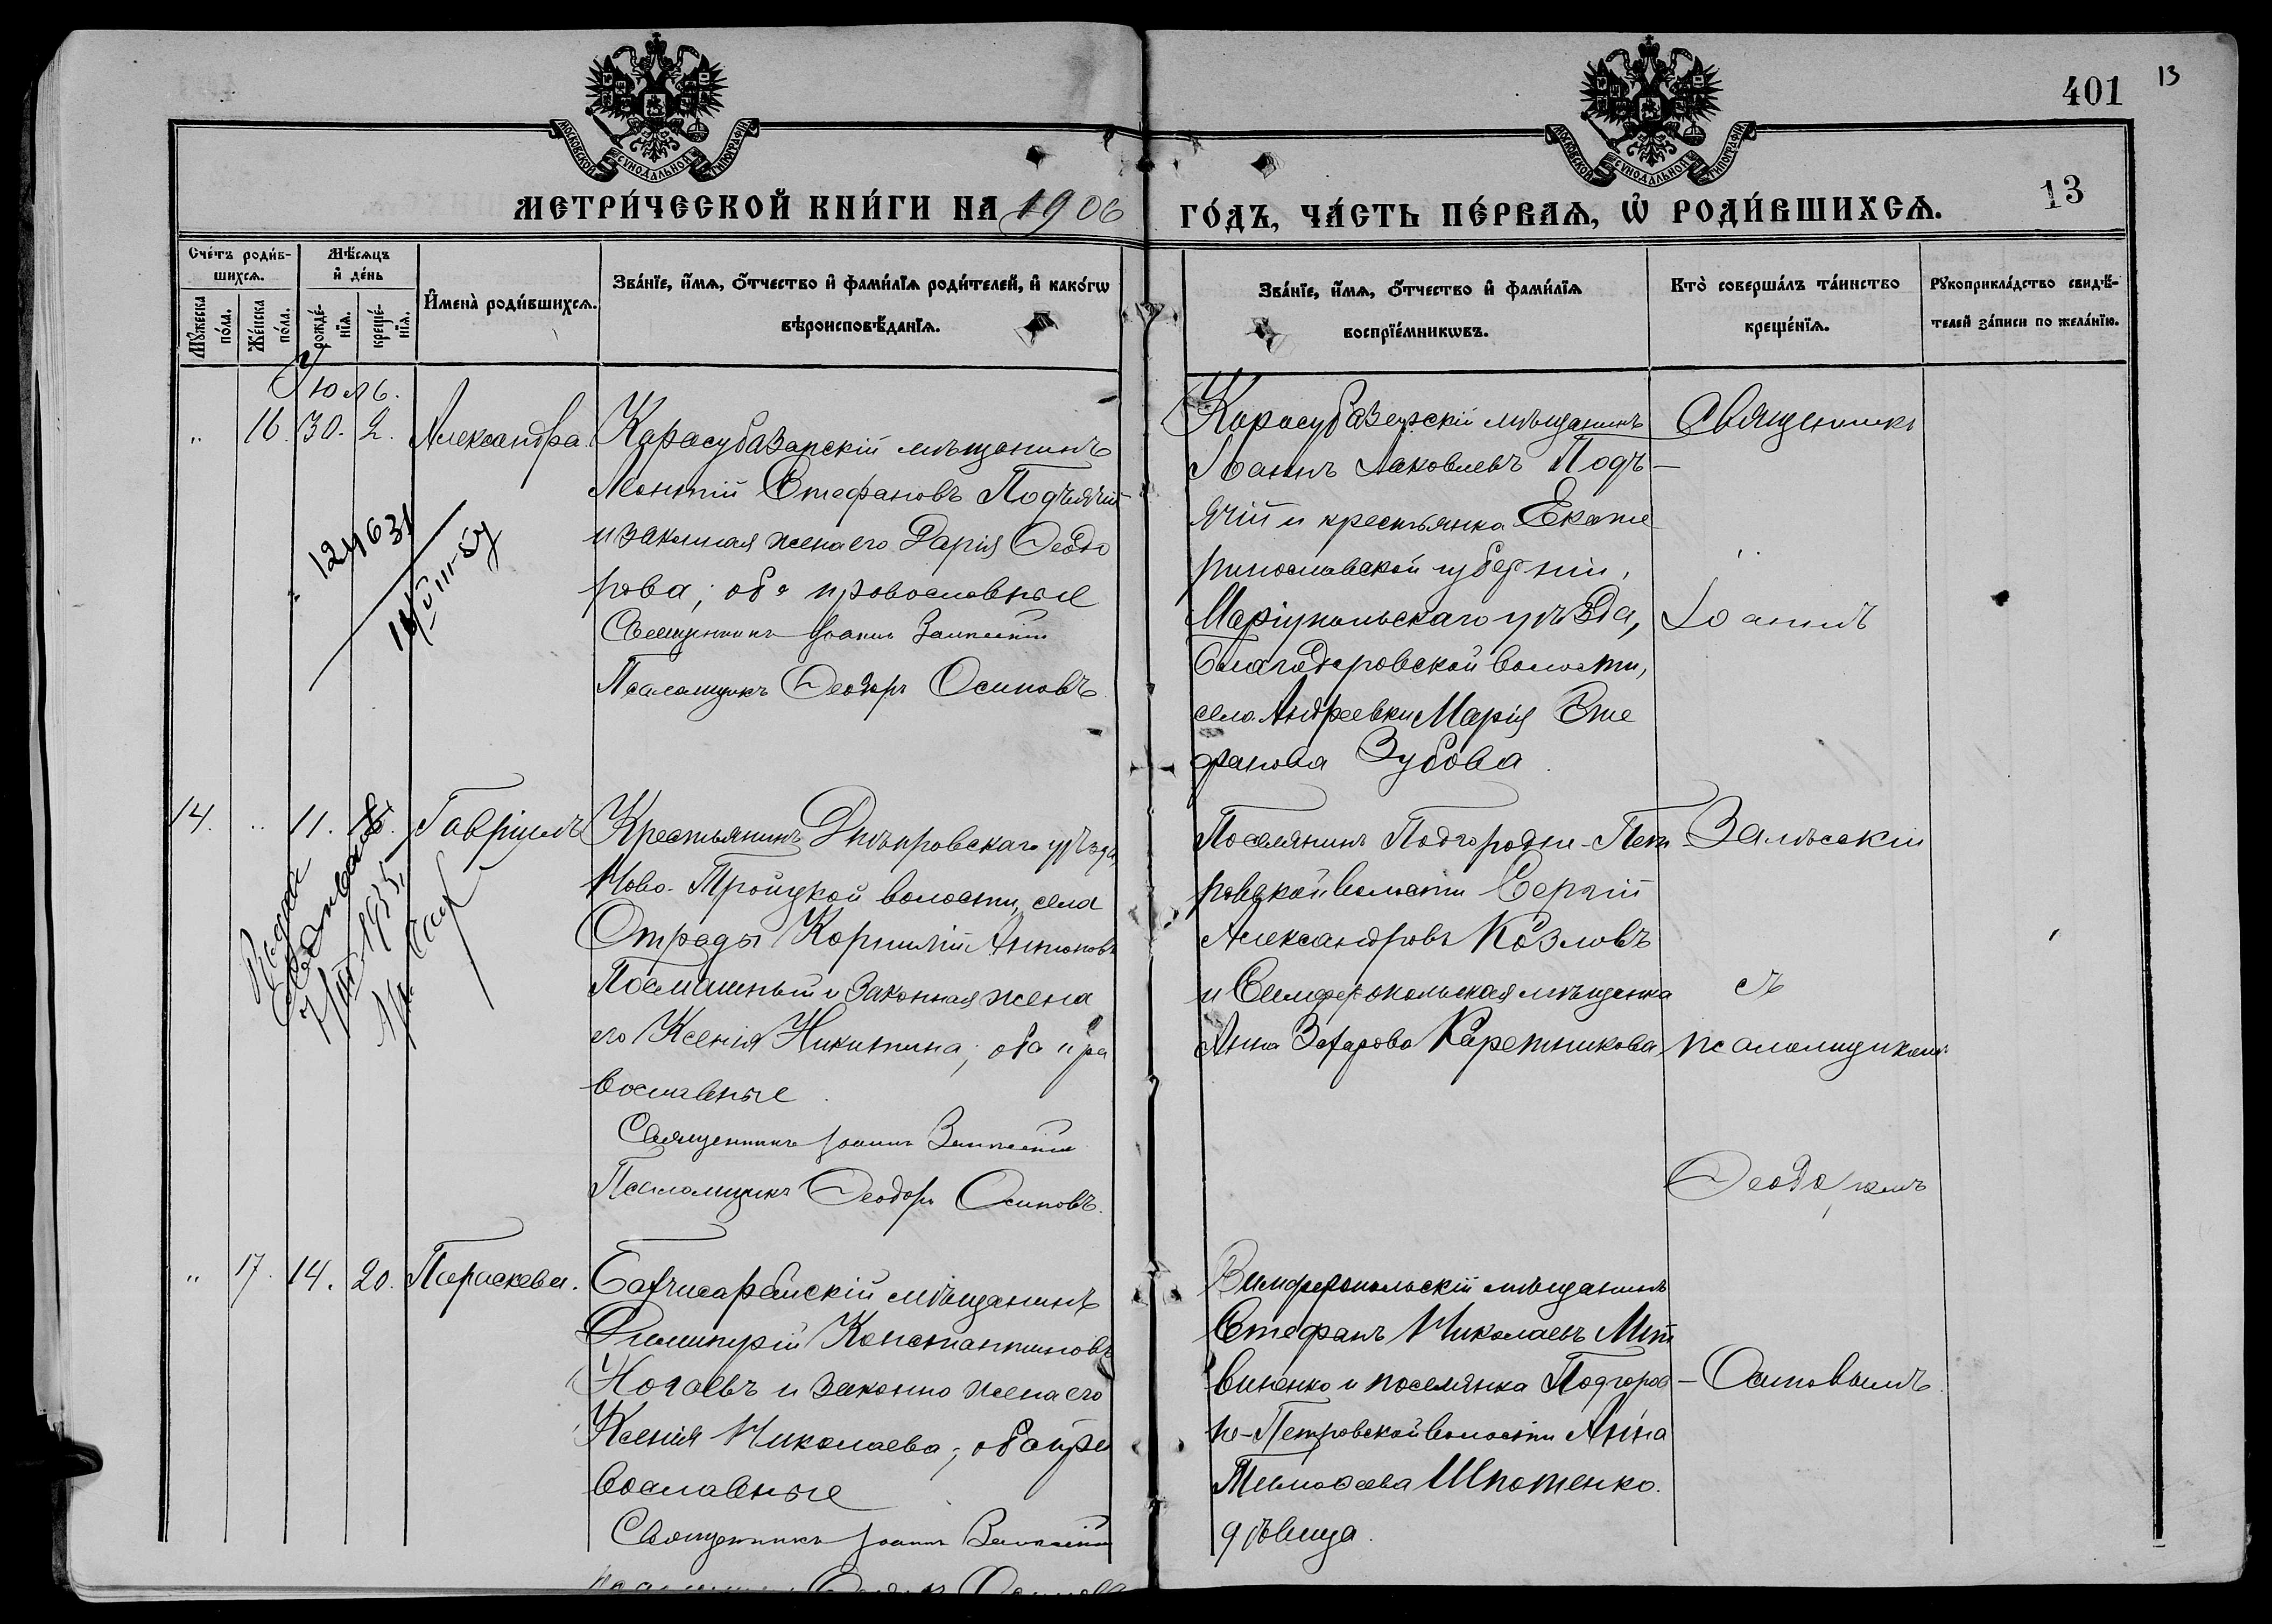 401
13
МОСКОВСКОЙ СѴНОДАЛЬНОЙ ТИПОГРАФІИ
МОСКОВСКОЙ СѴНОДАЛЬНОЙ ТИПОГРАФІИ
МЕТРИ́ЧЕСКОЙ КНИ́ГИ НА 1906
ГО́ДЪ, ЧА́СТЬ ПЕ́РВАѦ, Ѡ҆ РОДИ́ВШИХСѦ.
13
Сче́тъ роди́в-
шихсѧ.
Мѣ́сѧцъ
и҆ де́нь
Мꙋ́жеска
по́ла.
Же́нска
по́ла.
рожде́-
нїѧ.
креще́-
нїѧ.
И҆мена̀ роди́вшихсѧ.
Зва́нїе, и҆́мѧ, ѻ҆́тчество и҆ фами́лїѧ роди́телей, и҆ како́гѡ
вѣроисповѣ́данїѧ.
Зва́нїе, и҆́мѧ, ѻ҆́тчество и҆ фами́лїѧ
воспрїе́мникѡвъ.
Кто̀ соверша́лъ та́инство
креще́нїѧ.
Рꙋкоприкла́дство свидѣ́-
телей за́писи по жела́нїю.
Іюль.
" 16. 30. 2. Александра.
Карасубазарскій мѣщанинъ
Леонтій Стефановъ Подъячій
и законная жена его Дарія Ѳеодо
рова; оба православные
Священникъ Іоаннъ Залѣсскій
Псаломщикъ Ѳеодоръ Осиповъ.
Карасубазарскій мѣщанинъ
Іоаннъ Іаковлевъ Подъ-
ячій и крестьянка Екате
ринославской губерніи,
Маріупольскаго уѣзда,
Благодаровской волости,
села Андреевки Марія Сте
фанова Зубова.
Священникъ
Іоаннъ
14. " 11. Гавріилъ
Крестьянинъ Днѣпровскаго уѣзда,
Ново-Троицкой волости, села
Отрады Корнилій Антоновъ
и законная жена
его Ксенія Никитина; оба пра
вославные.
Священникъ Іоаннъ Залѣсскій
Псаломщикъ Ѳеодоръ Осиповъ.
Поселянинъ Подгородне-Пет
ровской волости Сергій
Александровъ Козловъ
и Симферопольская мѣщанка
Анна Захарова Каретникова
Залѣсскій
съ
псаломщикомъ
Ѳеодоромъ
" 17. 14. 20. Параскева.
Бахчисарайскій мѣщанинъ
Димитрій Константиновъ
Ногаевъ и законна жена его
Ксенія Николаева; оба пра
вославные
Священникъ Іоаннъ Залѣсскій
Псаломщикъ Ѳеодоръ Осиповъ
Симферопольскій мѣщанинъ
Стефанъ Николаевъ Лит
виненко и поселянка Подгород-
не-Петровской волости Анна
Тимоѳеева Шпотенко.
дѣвица.
Осиповымъ